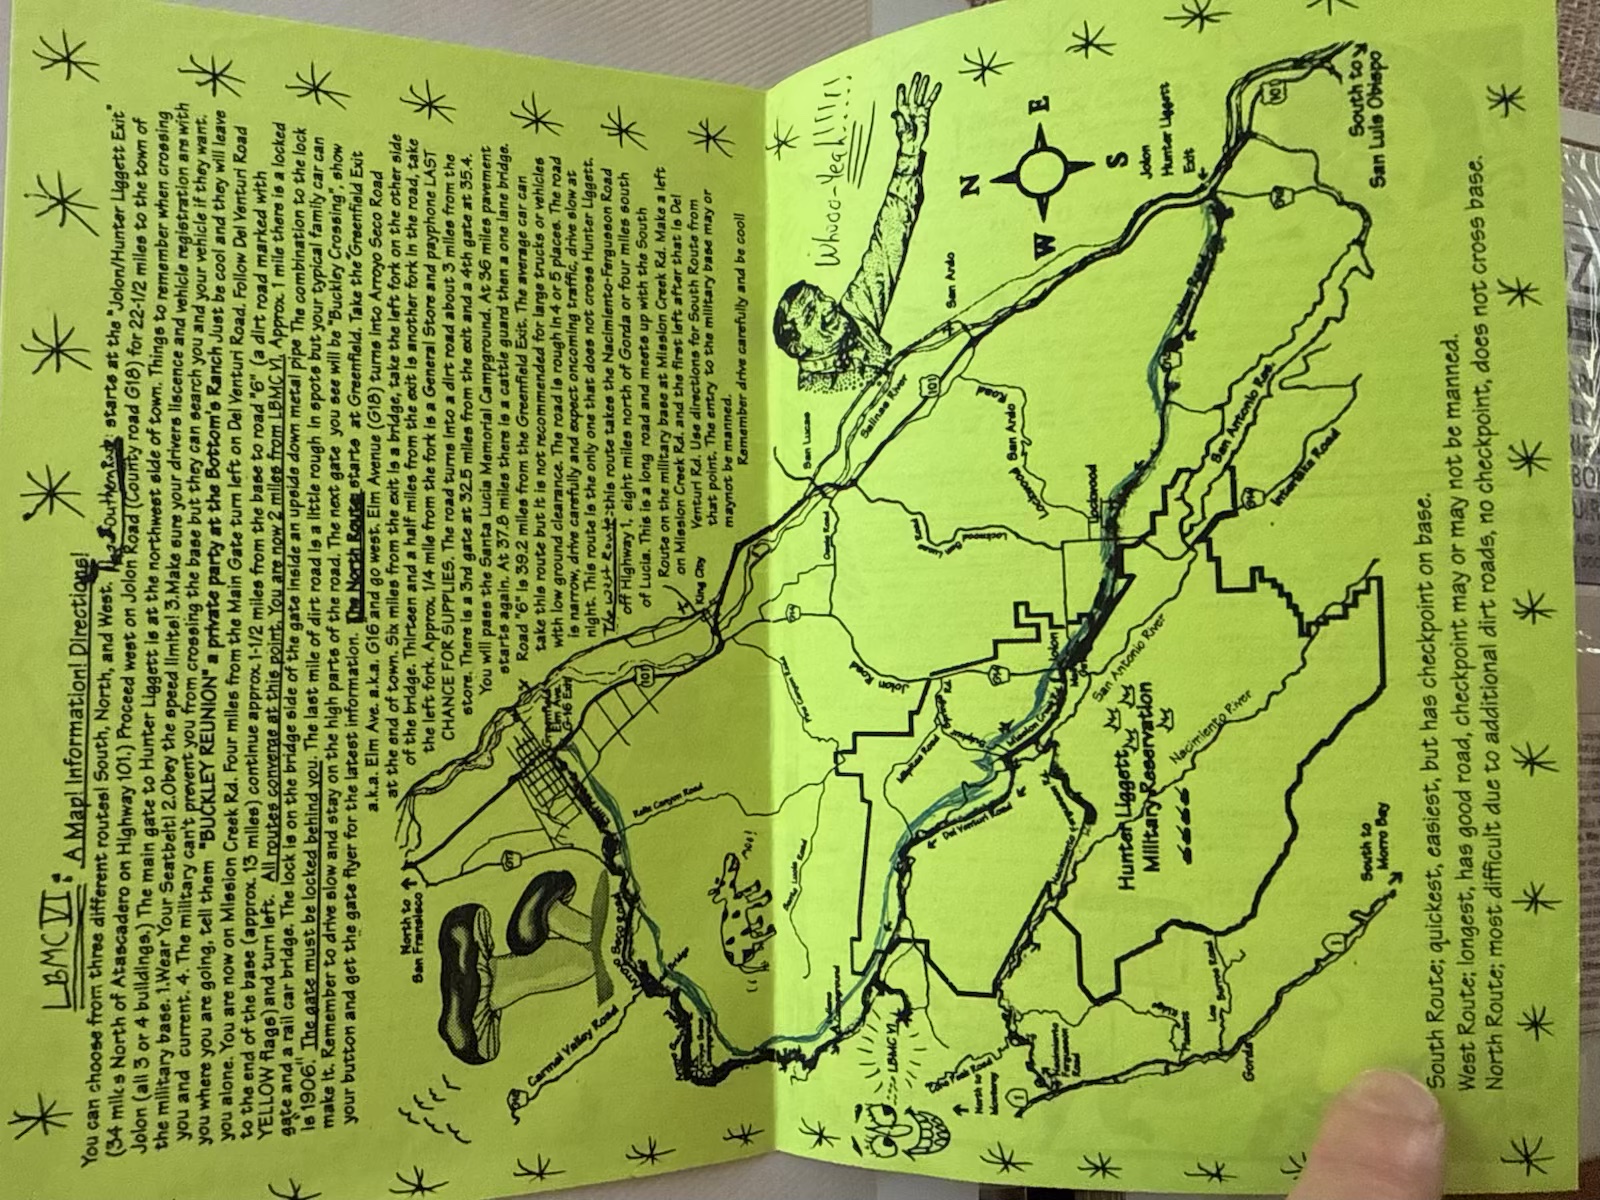 LBMC VI: A Map! Information! Directions!
You can choose from three different routes! South, North, and West. The Southern Route: starts at the "Jolon/Hunter Liggett Exit"
(34 miles North of Atascadero on Highway 101.) Proceed west on Jolon Road (County road G18) for 22-1/2 miles to the town of
Jolon (all 3 or 4 buildings.) The main gate to Hunter Liggett is at the northwest side of town. Things to remember when crossing
the military base. 1.Wear Your Seatbelt! 2.Obey the speed limits! 3.Make sure your drivers liscence and vehicle registration are with
you and current. 4. The military can't prevent you from crossing the base but they can search you and your vehicle if they want.
you where you are going, tell them "BUCKLEY REUNION" a private party at the Bottom's Ranch Just be cool and they will leave
you alone. You are now on Mission Creek Rd. Four miles from the Main Gate turn left on Del Venturi Road. Follow Del Venturi Road
to the end of the base (approx. 13 miles) continue approx. 1-1/2 miles from the base to road "6" (a dirt road marked with
YELLOW flags) and turn left. All routes converge at this point. You are now 2 miles from LBMC VI. Approx. 1 mile there is a locked
gate and a rail car bridge. The lock is on the bridge side of the gate inside an upside down metal pipe. The combination to the lock
is "1906." The gate must be locked behind you. The last mile of dirt road is a little rough in spots but your typical family car can
make it. Remember to drive slow and stay on the high parts of the road. The next gate you see will be "Buckley Crossing", show
your button and get the gate flyer for the latest information. The North Route: starts at Greenfield. Take the "Greenfield Exit
a.k.a. Elm Ave. a.k.a. G16 and go west. Elm Avenue (G18) turns into Arroyo Seco Road
at the end of town. Six miles from the exit is a bridge, take the left fork on the other side
of the bridge. Thirteen and a half miles from the exit is another fork in the road, take
the left fork. Approx. 1/4 mile from the fork is a General Store and payphone LAST
CHANCE FOR SUPPLIES. The road turns into a dirt road about 3 miles from the
store. There is a 3rd gate at 32.5 miles from the exit and a 4th gate at 35.4.
You will pass the Santa Lucia Memorial Campground. At 36 miles pavement
starts again. At 37.8 miles there is a cattle guard then a one lane bridge.
Road "6" is 39.2 miles from the Greenfield Exit. The average car can
take this route but it is not recommended for large trucks or vehicles
with low ground clearance. The road is rough in 4 or 5 places. The road
is narrow, drive carefully and expect oncoming traffic, drive slow at
night. This route is the only one that does not cross Hunter Liggett.
The West Route: this route takes the Nacimiento-Fergusson Road
off Highway 1, eight miles north of Gorda or four miles south
of Lucia. This is a long road and meets up with the South
Route on the military base at Mission Creek Rd. Make a left
on Mission Creek Rd. and the first left after that is Del
Venturi Rd. Use directions for South Route from
that point. The entry to the military base may or
maynot be manned.
Remember drive carefully and be cool!
Whooo-Yeah!!!!...
N
E
W
S
South to
San Luis Obispo
101
Jolon
Hunter Liggett
Exit
San Ardo
Salinas River
101
San Lucas
San Ardo
Road
Lockwood
San Lucas Road
Lockwood
King City
101
Jolon Road
San Antonio Res.
Interlake Road
Jolon
San Antonio River
Nacimiento River
Hunter Liggett
Military Reservation
Mission Creek Rd
Del Venturi Road
Greenfield
Elm Ave.
G-16 Exit
Reliz Canyon Road
North to
San Fransisco
Arroyo Seco Road
Bridge
Carmel Valley Road
Moo!
LBMC VI
North to
Monterey
1
Nacimiento
Fergusson
Road
Los Burros Road
Gorda
1
South to
Morro Bay
South Route; quickest, easiest, but has checkpoint on base.
West Route; longest, has good road, checkpoint may or may not be manned.
North Route; most difficult due to additional dirt roads, no checkpoint, does not cross base.